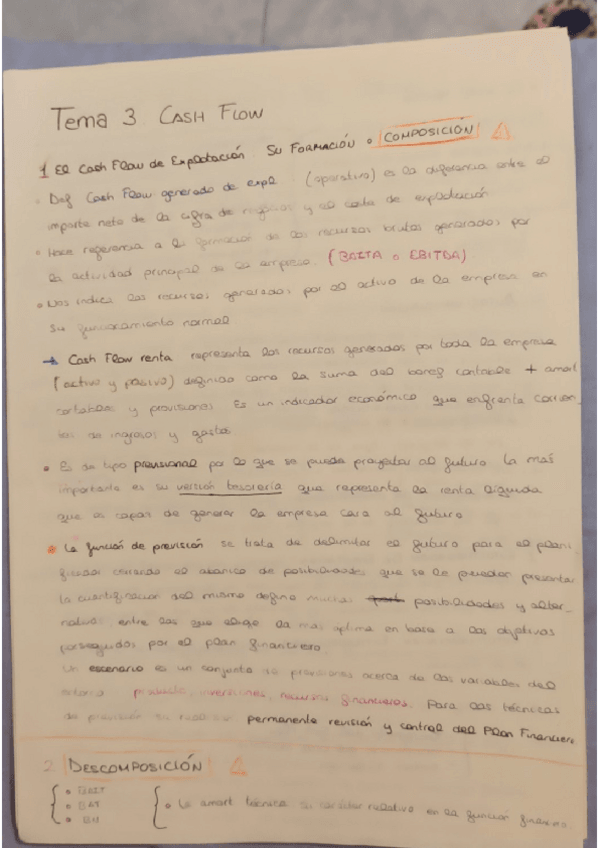 Tema 3 CASH FLOW
1 El Cash Flow de Explotación. Su FORMACIÓN o COMPOSICIÓN
Def Cash Flow generado de expl. (operativo) es la diferencia entre el
importe neto de la cifra de negocios y el coste de explotación
Hace referencia a la formación de los recursos brutos generados por
la actividad principal de la empresa. (BAITA o EBITDA)
Nos indica los recursos generados por el activo de la empresa en
su funcionamiento normal
→ Cash Flow renta representa los recursos generados por toda la empresa
(activo y pasivo) definido como la suma del contable + amort
contables y provisiones Es un indicador económico que enfrenta corrien
tes de ingresos y gastos
Es de tipo previsional por lo que se puede proyectar al futuro La más
importante es su versión tesorería que representa la renta líquida
que es capaz de generar la empresa cara al futuro
La función de previsión se trata de delimitar el futuro para el plani
ficador creando el abanico de posibilidades que se le pueden presentar
la cuantificación del mismo define muchas posibilidades y alter
nativas entre las que elige la más óptima en base a los objetivos
perseguidos por el plan financiero
Un escenario es un conjunto de previsiones acerca de las variables del
entorno producto, inversiones, recursos financieros. Para las técnicas
de previsión se realiza permanente revisión y control del Plan Financiero
2 DESCOMPOSICIÓN
BAIT
BAT
BN
La amort técnica su carácter relativo en la función financiera